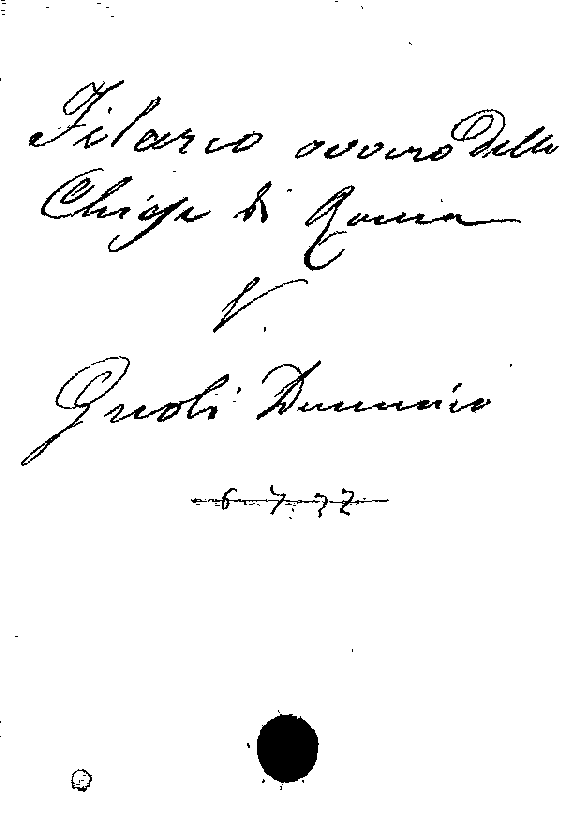 Filario ovvero Delle
Chiese di Roma
V.
Gnoli Domenico
6 7 77